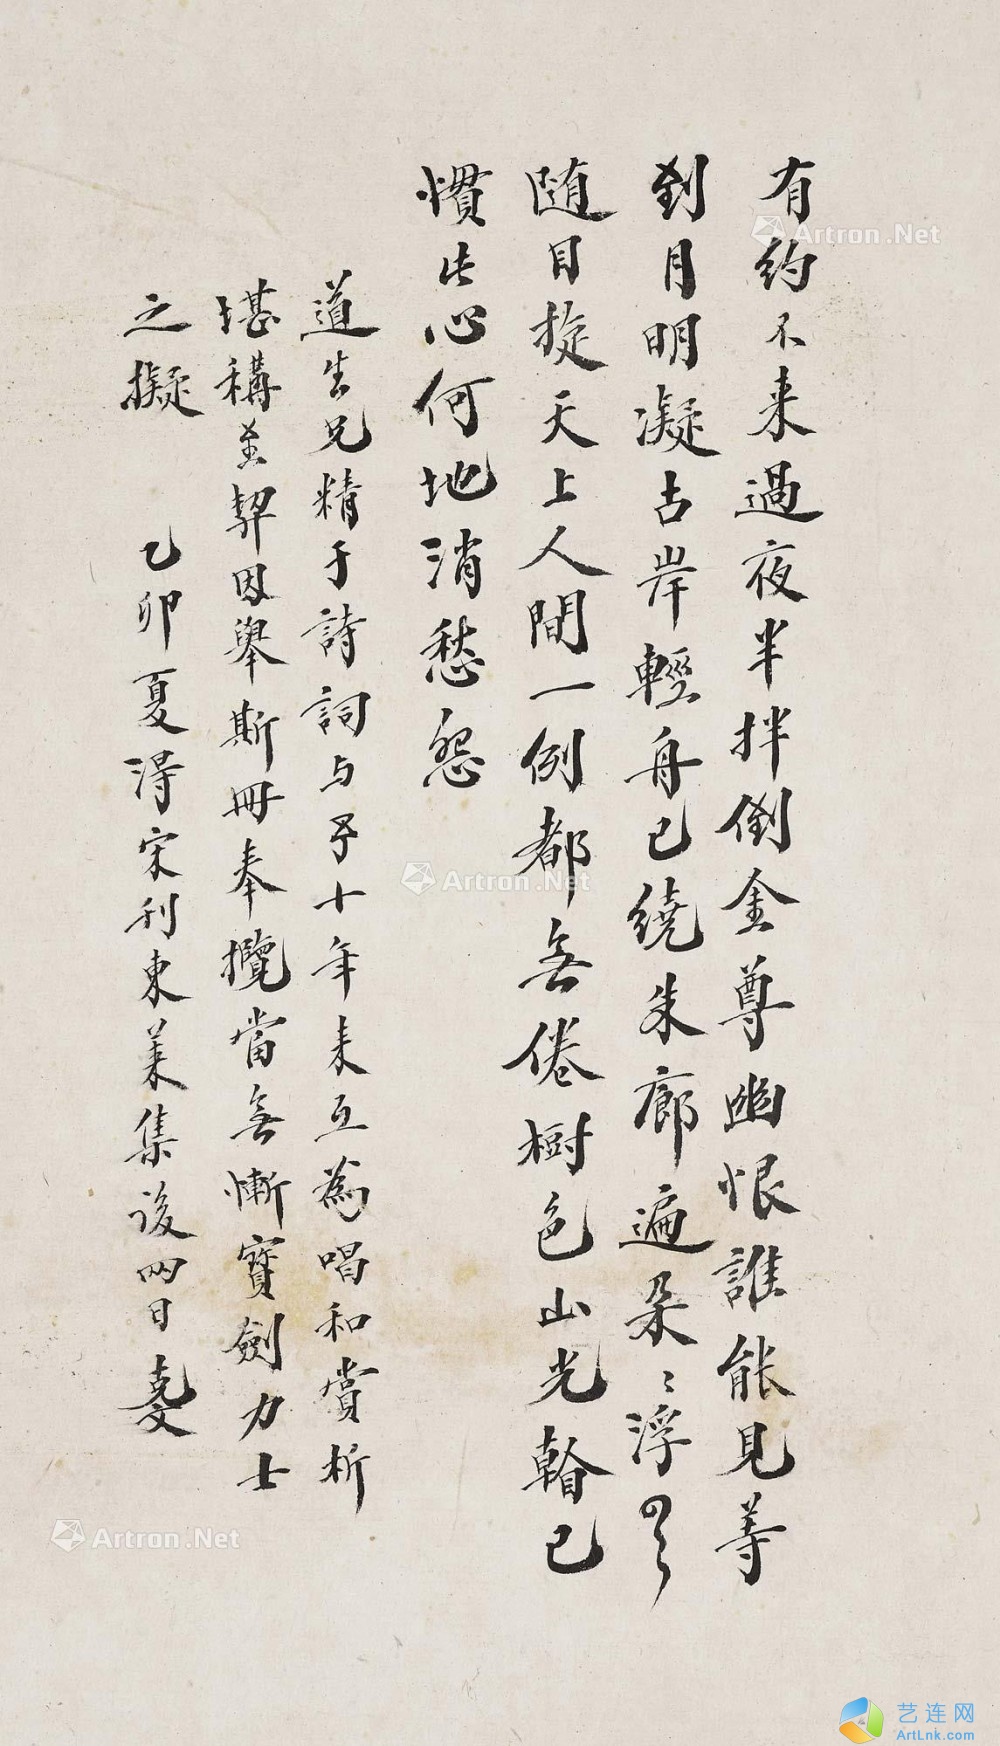 有約不来過夜半拌倒金尊幽恨誰能見等
到月明凝古岸輕舟已繞朱廊遍朵〻浮雲
随目旋天上人間一例都無倦樹色山光翰已
慣此心何地消愁怨
道生兄精于詩詞与予十年来互為唱和賞析
堪稱至契因舉斯冊奉攬當無慚寶劍力士
之擬
乙卯夏得宋刊東萊集後兩日
Artron.Net
Artron.Net
Artron.Net
艺连网
ArtLnk.com